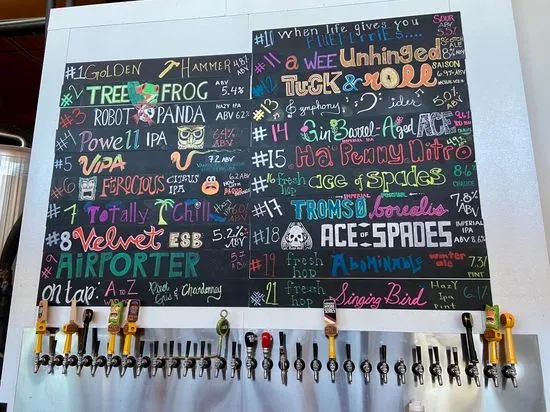 #1 Golden Hammer 4.8% ABV
#2 TREE FROG ABV 5.4%
#3 ROBOT PANDA HAZY IPA ABV 6.2%
#4 Powell IPA 6.4% ABV
#5 VIPA 7.2 ABV
#6 FEROCIOUS CITRUS IPA 6.2 ABV
#7 Totally Chill
#8 Velvet ESB 5.2% ABV
#9 AIRPORTER 5.7 ABV
on tap: A to Z Pinot Gris & Chardonnay
#11 When life gives you SOUR ABV 5.5%
#11 a WEE Unhinged SCOTCH ALE 8% ABV
TUCK & roll SAISON
#13 a Symphony in "C"ider 5.0% ABV
#14 Gin Barrel-Aged ACE
#15 Ha' Penny Nitro
#16 fresh hop ace of Spades 8.6%
#17 TROMSØ borealis 7.8% ABV
#18 ACE OF SPADES IMPERIAL IPA ABV 8.6%
#19 fresh hop Abominable winter ale 7.3/ PINT
21 fresh hop Singing Bird Hazy Ipa Pint 6.1%